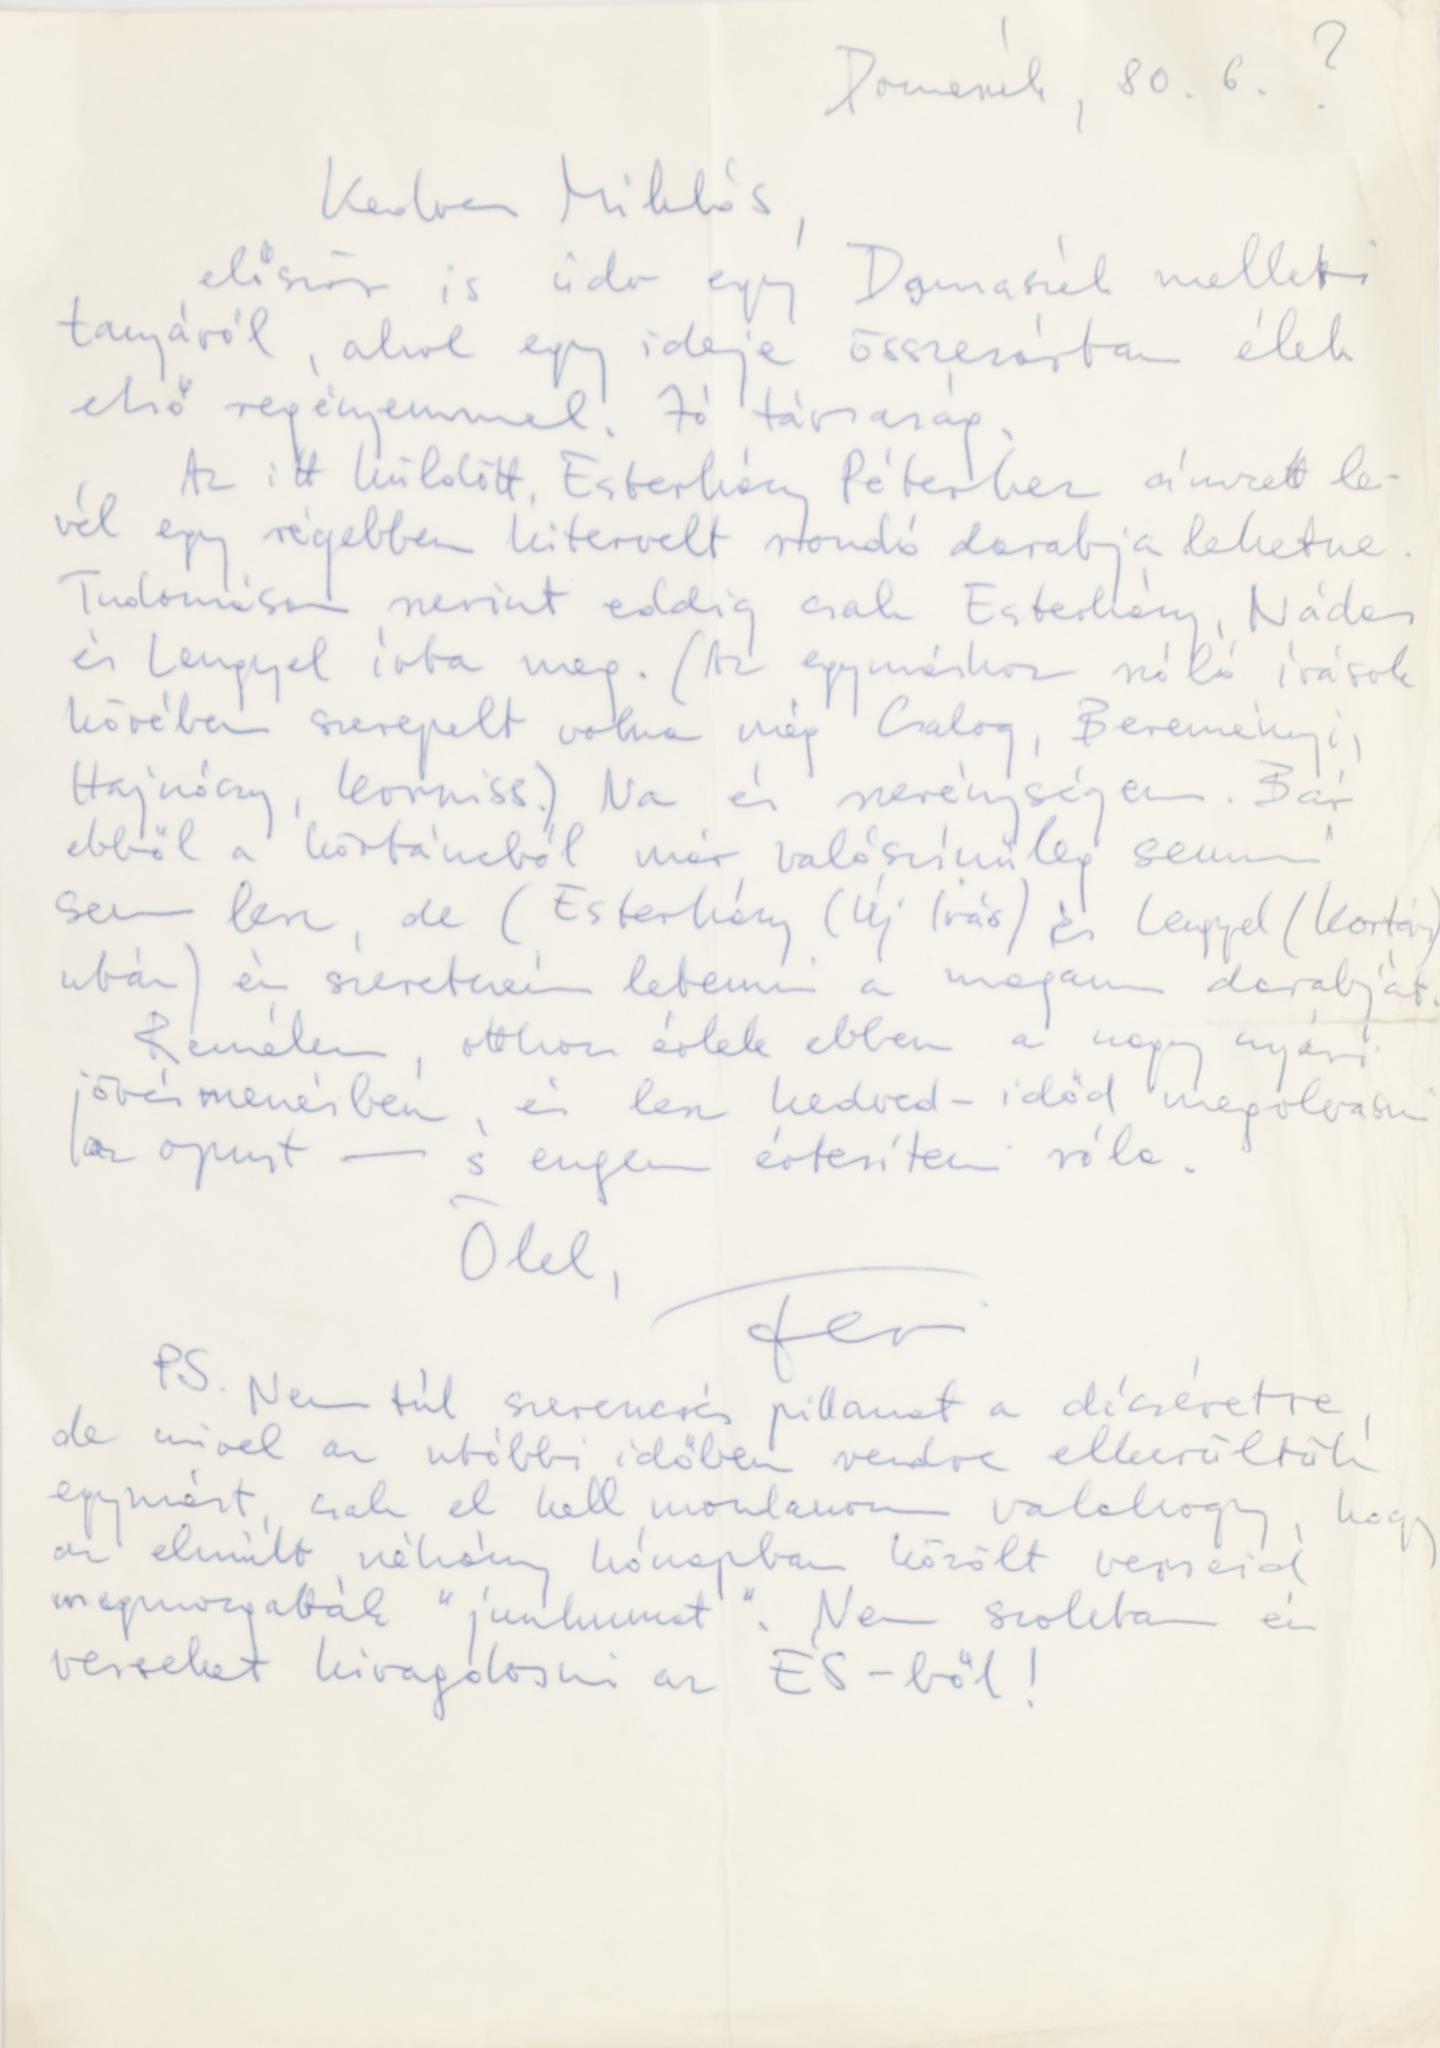 Domaszék, 80. 6. ?
Kedves Miklós,
először is üdv egy Domaszék melletti
tanyáról, ahol egy ideje összezárban élek
első regényemmel. Jó társaság.
Az itt küldött, Esterházy Péterhez címzett le-
vél egy régebben kitervelt rondó darabja lehetne.
Tudomásom szerint eddig csak Esterházy, Nádas
és Lengyel írta meg. (Az egymáshoz szóló írások
körében szerepelt volna még Csalog, Bereményi,
Hajnóczy, Korniss.) Na és szerénységem. Bár
ebből a körtáncból már valószínűleg semmi
sem lesz, de (Esterházy (Új Írás) és Lengyel (Kortárs)
után) én szeretném letenni a magam darabját.
Remélem, otthon érlek ebben a nagy nyári
jövésmenésben, és lesz kedved-időd megolvasni
az opust — s engem értesíteni róla.
Ölel,
Feri
PS. Nem túl szerencsés pillanat a dícséretre,
de mivel az utóbbi időben rendre elkerültük
egymást, csak el kell mondanom valahogy, hogy
az elmúlt néhány hónapban közölt verseid
megmozgatták "junkumat". Nem szoktam én
verseket kivagdosni az ÉS-ből!